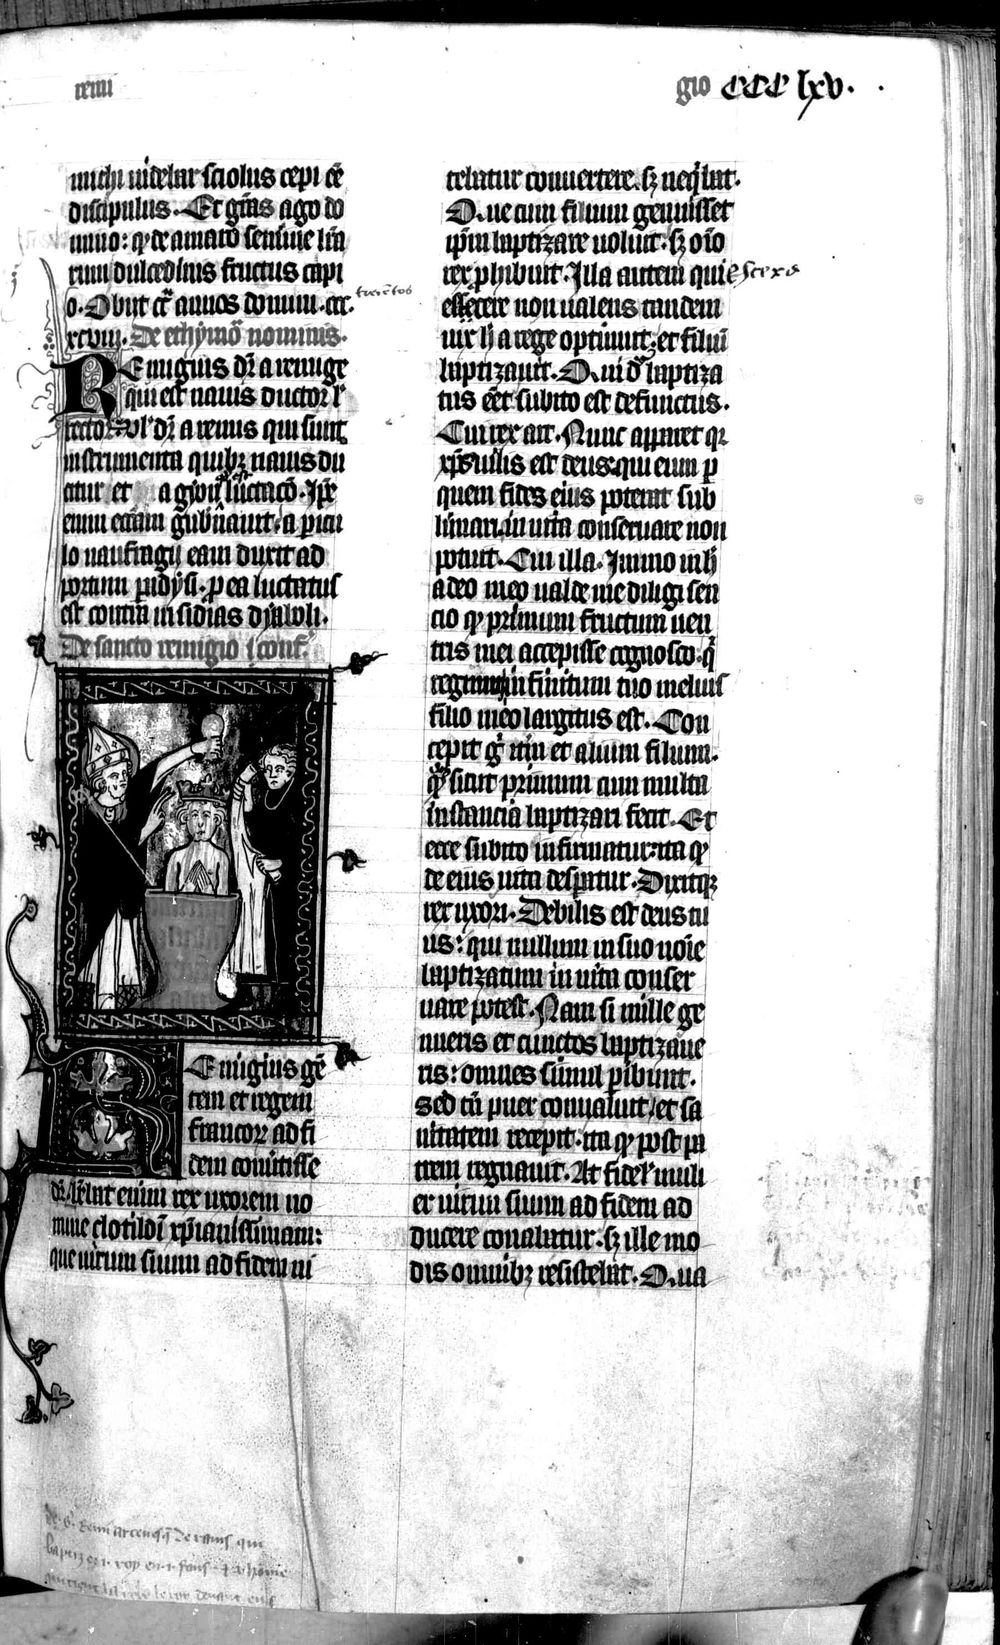 remi
gio CCC lxv.
michi uidebar sciolus cepi eē
discipulus. Et grās ago do
mino: qꝫ de amaro semine līa
rum dulcedinis fructus capi
o. Obijt cͬ annos domini. ccc.
trecētos
xcviij. De ethymo nominis.
REmigius dͬ a remige
qui est nauis ductor ł
rector. Vł dͬ a remis qui sunt
instrumenta quibꝫ nauis du
citur et a gion luctacō. Ip̄e
enim ecc̄am gub̄nauit. a p̄icu
lo naufragij eam duxit ad
portum p̱adysi. ꝓ ea luctatus
est contra insidias dyaboli.
De sancto remigio cōnf.
REmigius gē
tem et regem
francoꝝ ad fi
dem conuertisse
dͬ. Habebat enim rex uxorem no
mine clotildī xp̄ianissimam:
que uirum suum ad fidem ni
tebatur conuertere. sꝫ neq̄bat.
Que cum filium genuisset
ip̄m baptizare uoluit. sꝫ oīo
rex ꝓhibuit. Illa autem quiescere
non ualens tandem
uix h̄ a rege optinuit. et filiū
baptizauit. Qui dͫ baptiza
tus eēt subito est defunctus.
Cui rex ait. Nunc apparet qꝫ
xp̄s uilis est deus. qui eum p̱
quem fides eius poterat sub
limari. in uita conseruare non
potuit. Cui illa. Immo in h̄
a deo meo ualde me diligi sen
cio qꝫ primum fructum uen
tris mei accepisse cognosco. q̄
regnum infinitum tuo melius
filio meo largitus est. Con
cepit gͦ itm̄ et alium filium.
quē sicut primum cum multa
instancia baptizari fecit. Et
ecce subito infirmatur. ita qꝫ
de eius uita desp̱atur. Dixitqꝫ
rex uxori. Debilis est deus tu
us: qui nullum in suo noīe
baptizatum in uita conser
uare potest. Nam si mille ge
nueris et cunctos baptizaue
ris: omnes simul p̱ibunt.
Sed tn̄ puer conualuit. et sa
nitatem recepit. ita qꝫ post pa
trem regnauit. At fidelͭ muli
er uirum suum ad fidem ad
ducere conabatur. sꝫ ille mo
dis omnibꝫ resistebat. Qua
de .s. Remi arceuesq̄ de rains qui
baptiz vn roy en .i. fons